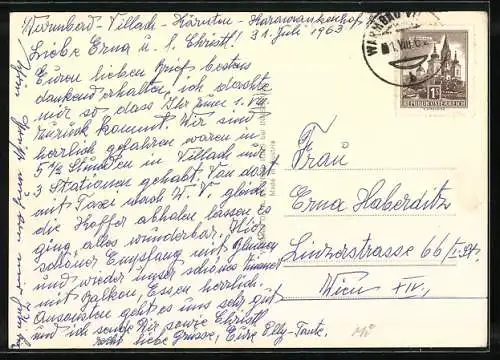 Warmbad-Villach Kärnten-Karawankenhof
31. Juli 1963
Liebe Erna u. l. Christl!
Euren lieben Brief bestens
dankend erhalten, ich dachte
mir so, dass Ihr zum 1. VIII.
zurück kommt. Wir sind
herrlich gefahren waren in
5 1/2 Stunden in Villach nur
3 Stationen gehabt. Von dort
mit Taxe nach W. V. gleich
die Koffer abholen lassen es
ging alles wunderbar. Hier
schöner Empfang mit Blumen
und wieder unser schönes Zimmer
mit Balkon, Essen herrlich.
Ansonsten geht es uns sehr gut
und ich sende Dir sowie Christl
recht liebe Grüsse, Eure Elly-Tante.
WARMBAD VI
1. VIII. 6
1S
REPUBLIK ÖSTERREICH
Frau
Erna Haberditz
Linzerstrasse 66/I. St.
Wien XIV.